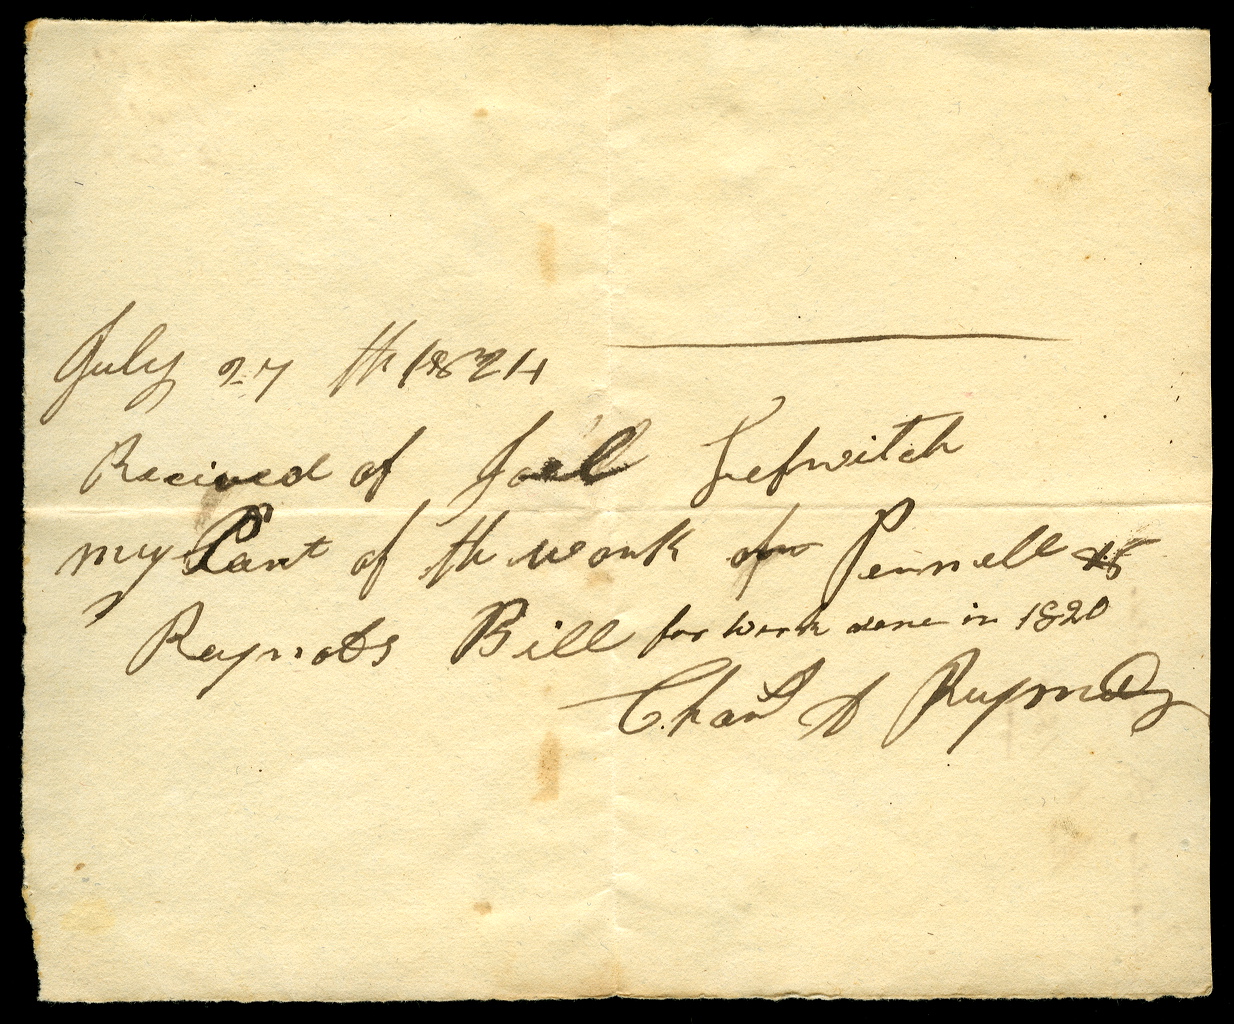 July 27 th 1824
Recived of Joel Lefwitch
my Part of th work on Pennell &
Raynols Bill for work done in 1820
Charls A Raynols